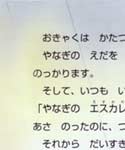 おきゃくは　かたつ
やなぎの　えだを
のっかります。
そして、いつも　い
「やなぎの　エスカレ
あさ　のったのに、つ
それから　だいすき